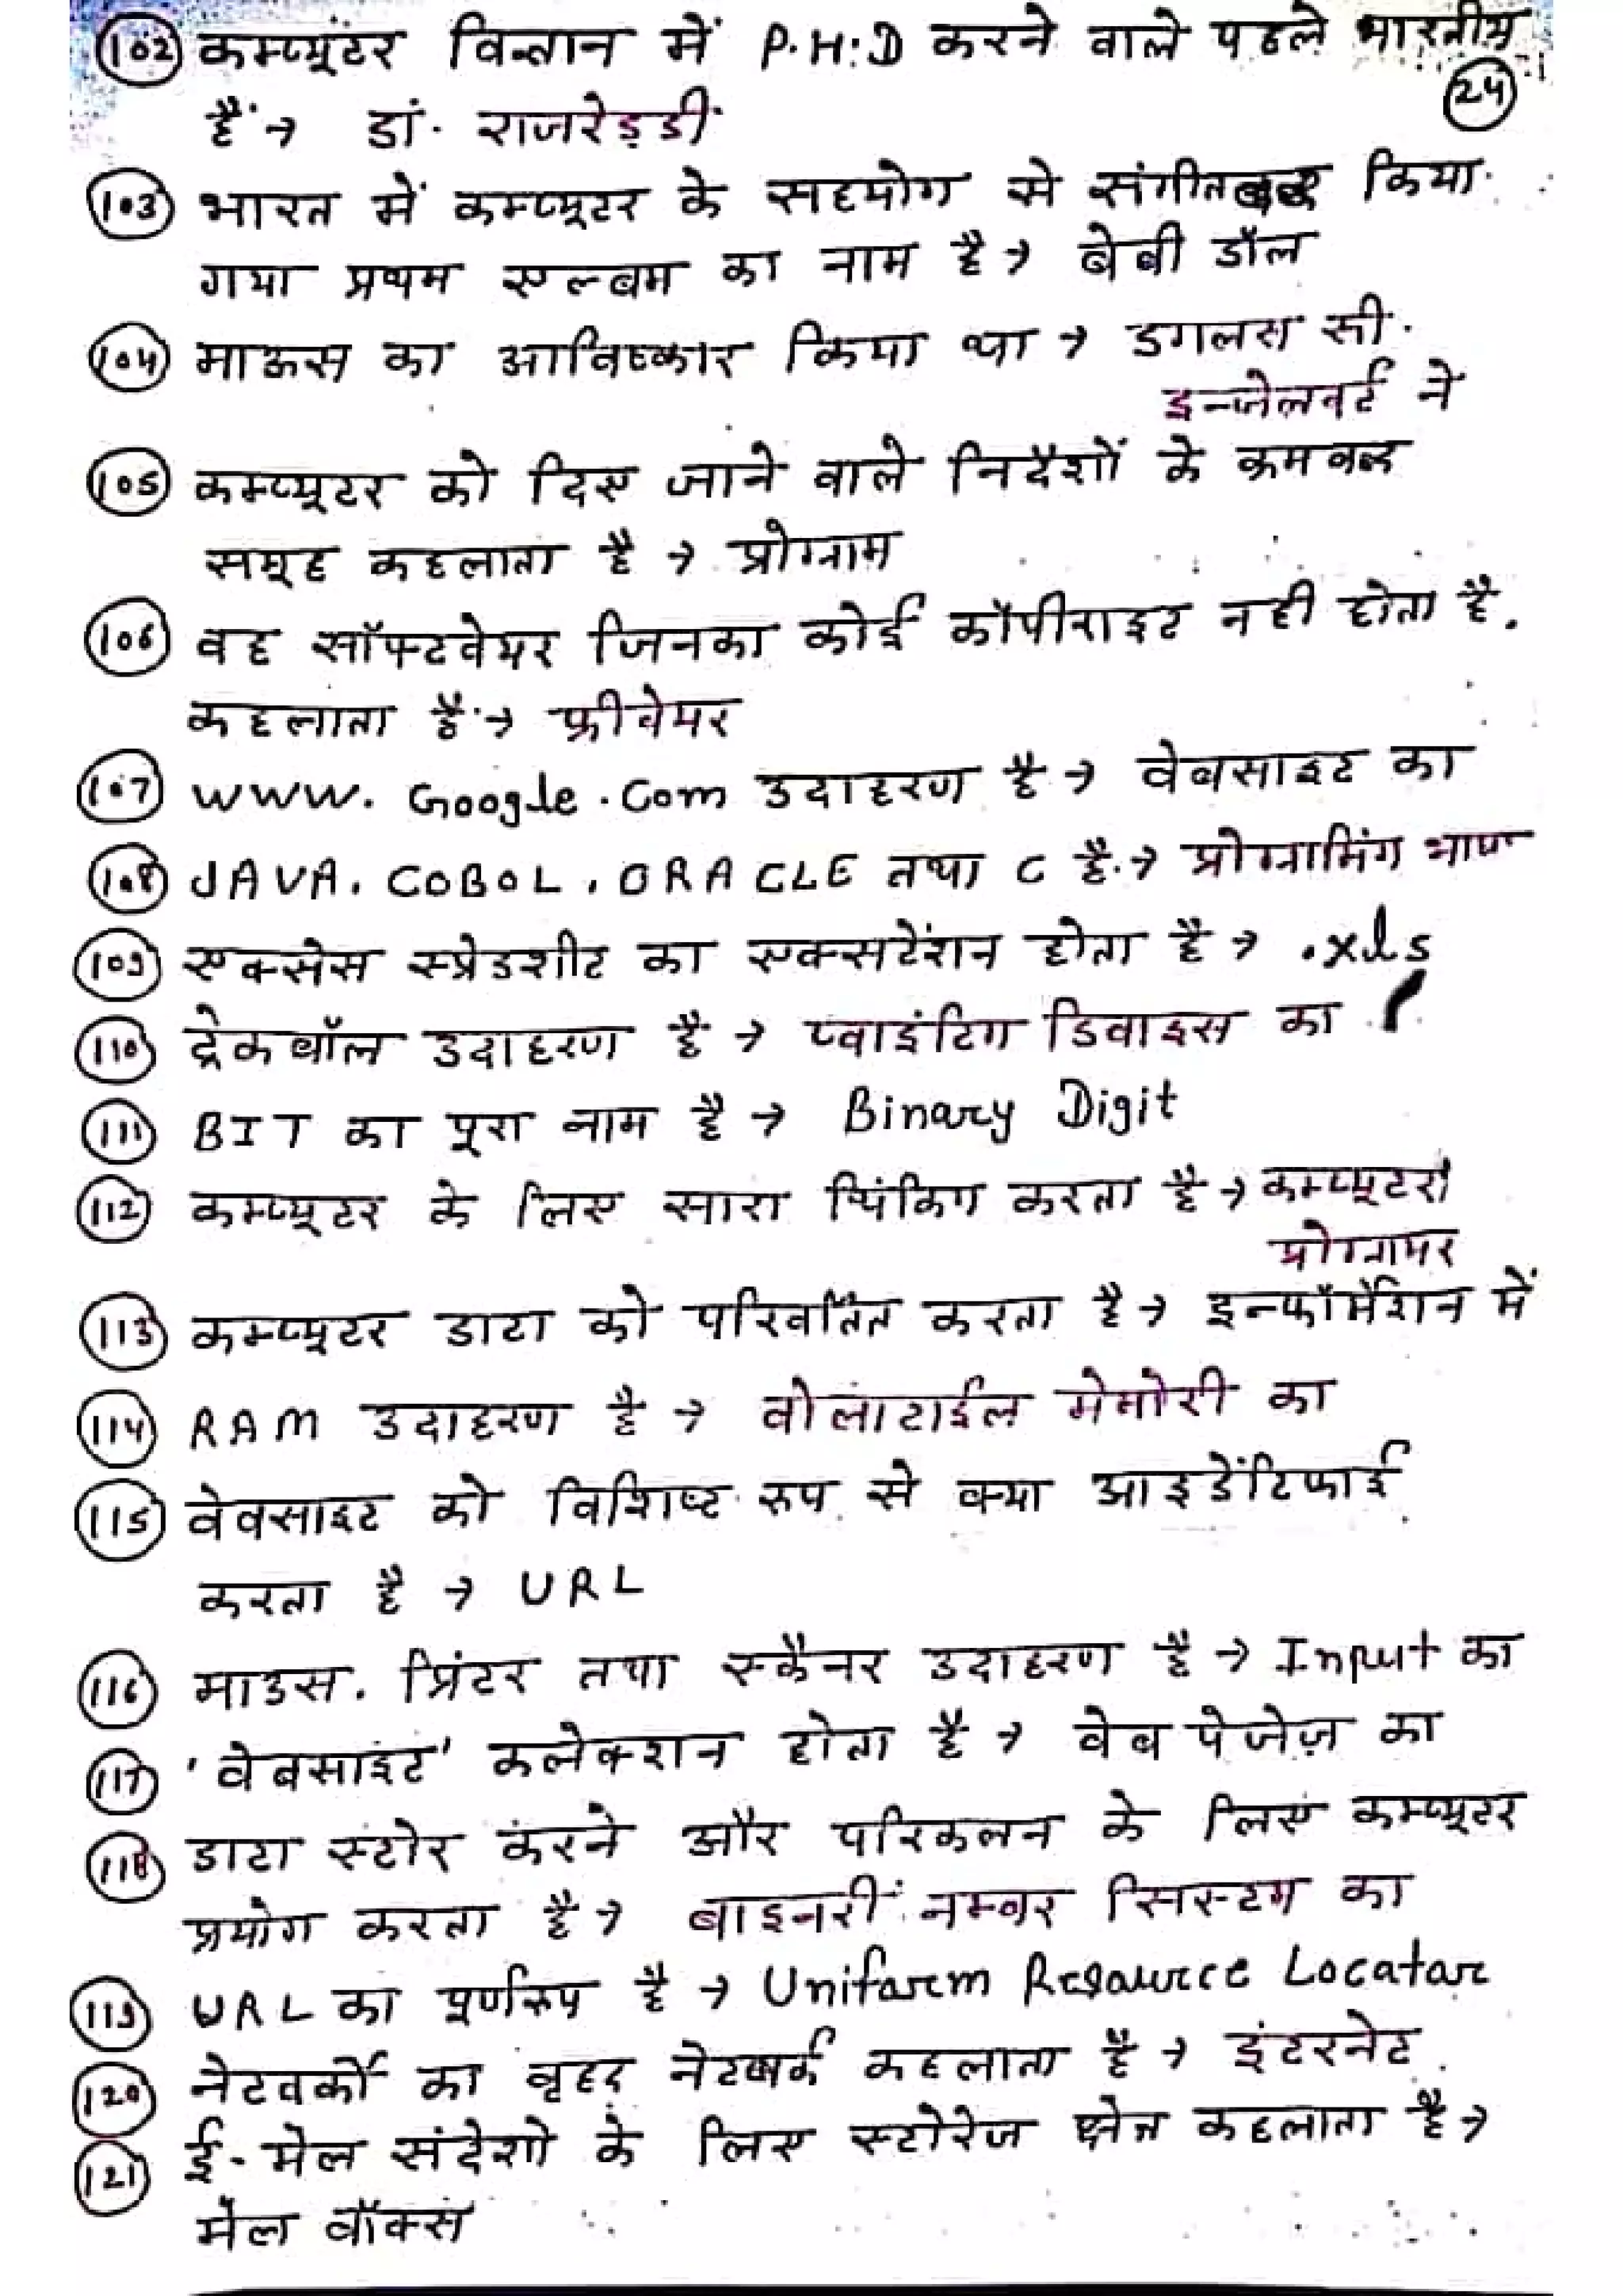 102 कम्प्यूंटर विज्ञान में P.H.D करने वाले पहले भारतीय
24
हैं → डां. राजरेड्डी
103 भारत में कम्प्यूटर के सहयोग से संगीतबद्ध किया
गया प्रथम एल्बम का नाम है → बेबी डॉल
104 माऊस का आविष्कार किया था → डगलस सी.
इन्जेलवर्ट ने
105 कम्प्यूटर को दिए जाने वाले निर्देशों के क्रमबद्ध
समूह कहलाता है → प्रोग्राम
106 वह सॉफ्टवेयर जिनका कोई कॉपीराइट नही होता है.
कहलाता है → फ्रीवेयर
107 www. Google.Com उदाहरण है → वेबसाइट का
108 JAVA, COBOL, ORACLE तथा C है → प्रोग्रामिंग भाषा
109 एक्सेस स्प्रेडशीट का एक्सटेंशन होता है → .xls
110 ट्रेकबॉल उदाहरण है → प्वाइंटिग डिवाइस का
111 BIT का पूरा नाम है → Binary Digit
112 कम्प्यूंटर के लिए सारा थिंकिग करता है → कम्प्यूटर
प्रोग्रामर
113 कम्प्यूटर डाटा को परिवर्तित करता है → इन्फॉर्मेशन में
114 RAM उदाहरण है → वोलाटाईल मेमोरी का
115 वेबसाइट को विशिष्ट रूप से क्या आइडेंटिफाई
करता है → URL
116 माउस. प्रिंटर तथा स्कैनर उदाहरण है → Input का
117 'वेबसाइंट' कलेक्शन होता है → वेब पेजेज़ का
118 डाटा स्टोर करने और परिकलन के लिए कम्प्यूटर
प्रयोग करता है → बाइनरी नम्बर सिस्टम का
119 URL का पूर्णरूप है → Uniform Resource Locator
120 नेटवर्को का वृहद् नेटवर्क कहलाता है → इंटरनेट
121 ई-मेल संदेशो के लिए स्टोरेज क्षेत्र कहलाता है →
मेल बॉक्स